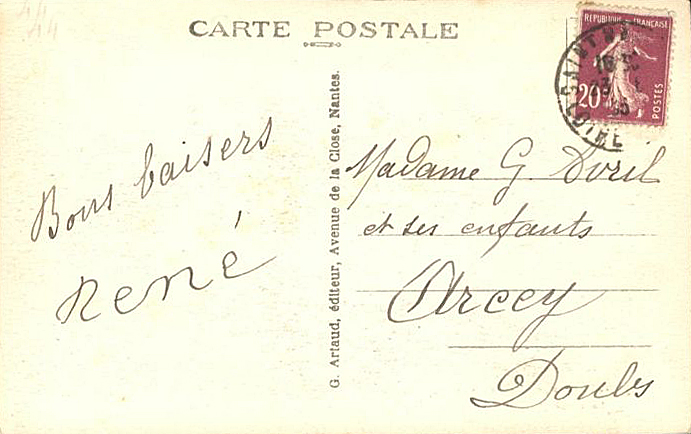 CARTE POSTALE
REPUBLIQUE FRANÇAISE
20
POSTES
Bons baisers
René
G. Artaud, éditeur, Avenue de la Close, Nantes.
Madame G Avril
et ses enfants
Arcey
Doubs